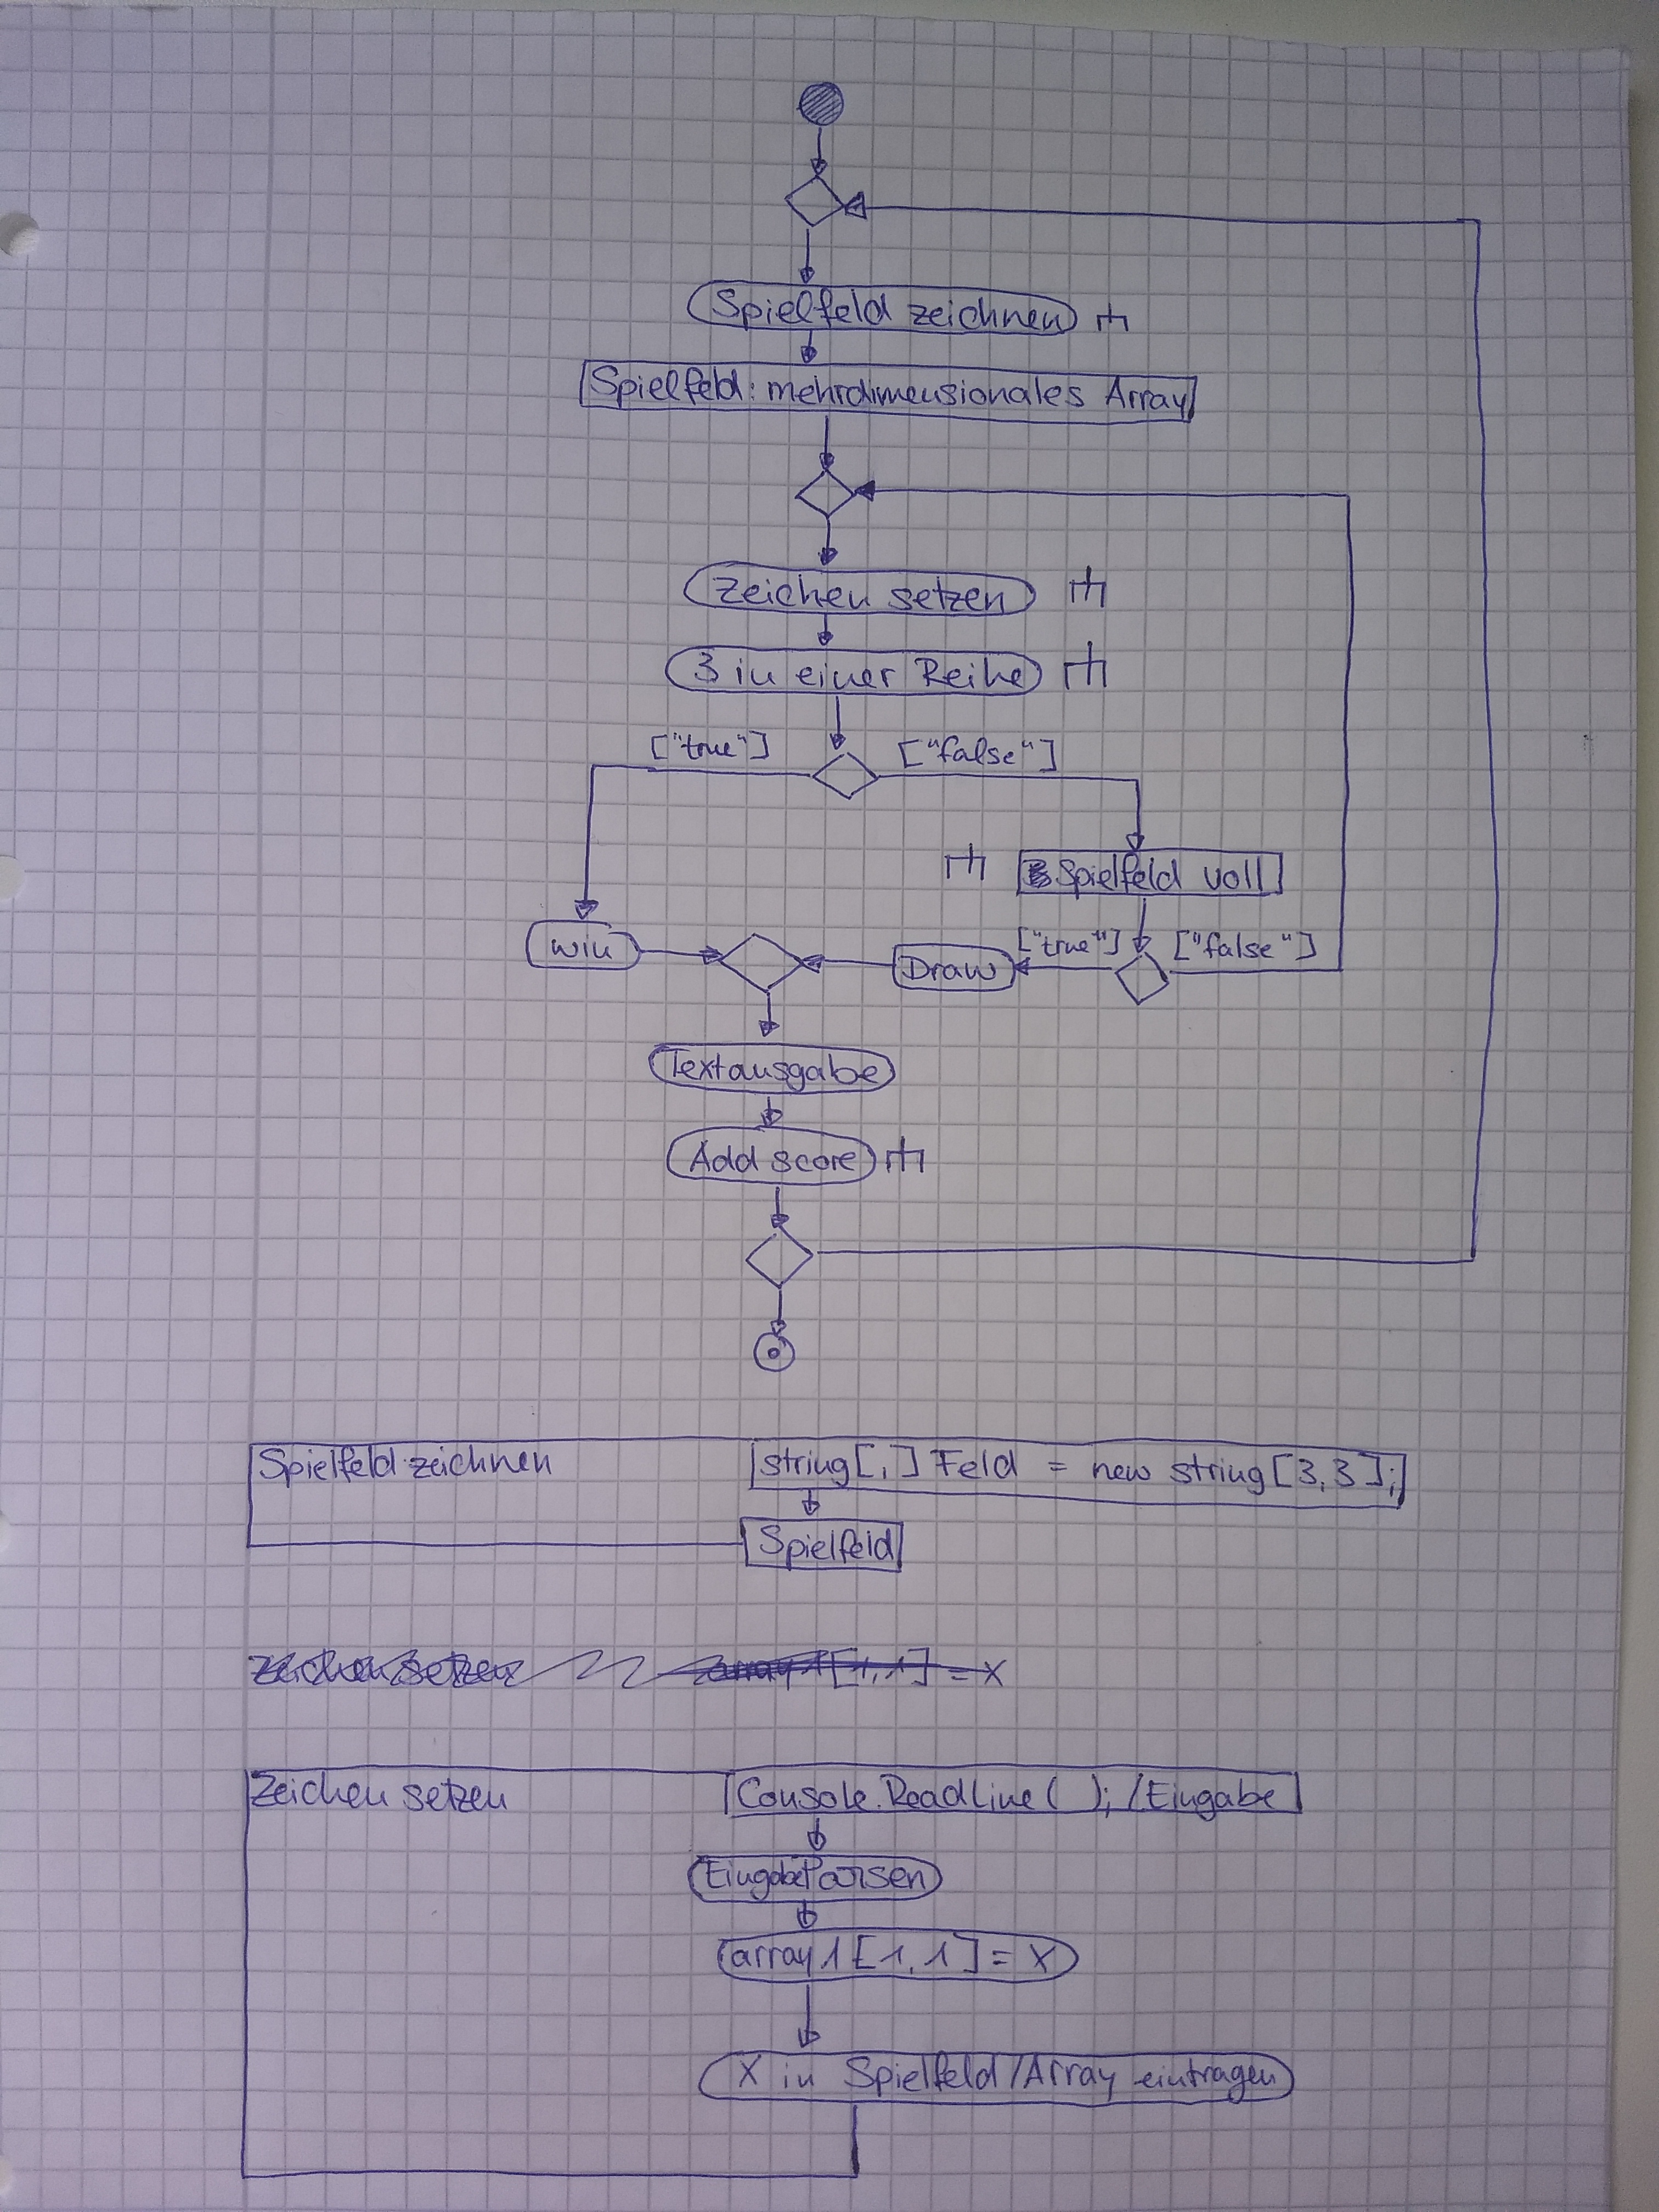 Spielfeld zeichnen
Spielfeld: mehrdimensionales Array
Zeichen setzen
3 in einer Reihe
["true"] ["false"]
Spielfeld voll
win
Draw
["true"] ["false"]
Textausgabe
Add score
Spielfeld zeichnen
string[,] Feld = new string[3,3];
Spielfeld
Zeichen setzen array1[1,1] = X
Zeichen setzen
Console.ReadLine( ); /Eingabe
Eingabe Parsen
array1[1,1] = X
X in Spielfeld/Array eintragen